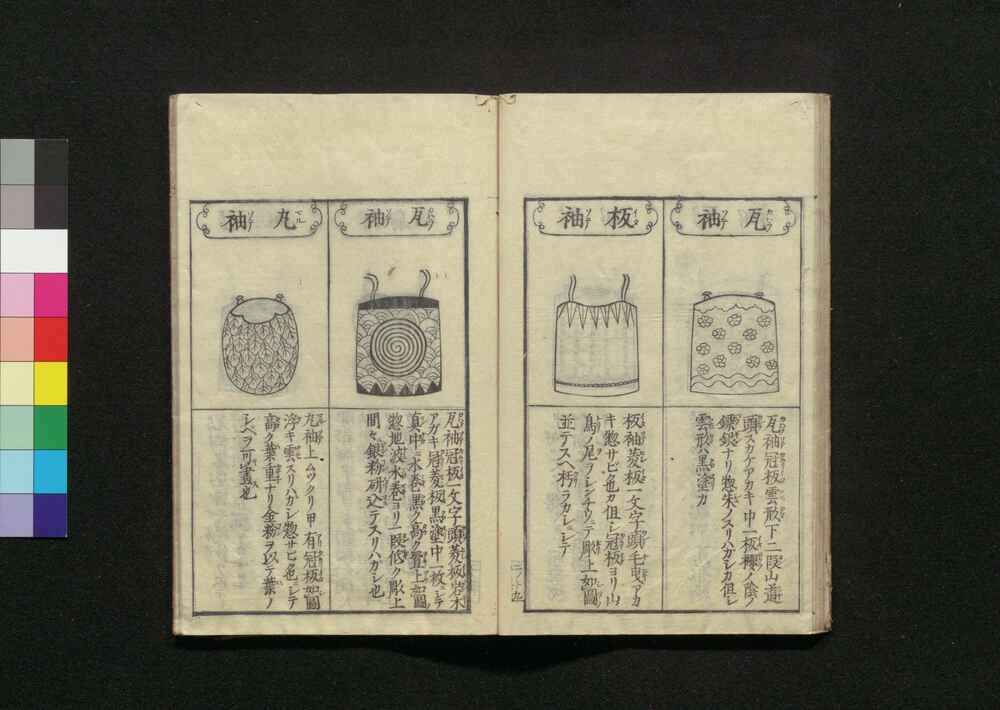 瓦袖
瓦袖冠板雲形下二段山道
頭スカケアカキ中一板桜ノ陰ノ
鐶銀ナリ惣朱ノスリハガシカ但シ
雲形ハ黒塗カ
板袖
板袖菱板一文字頭毛曳アカ
キ惣サビ色カ但シ冠板ヨリ山
鳥ノ尾ヲ
彫上如圖
並テスヘ朽ラカシシテ
二ノ十九
瓦袖
瓦袖冠板一文字頭菱板岩木
アガキ冠菱板黒塗中一枚シテ
真中ニ水巻黒ク高ク置上如圖
惣地波水巻ヨリ一段低ク彫上
間々銀粉研込テスリハガシ也
丸袖
丸袖上ムツクリ甲有冠板如圖
浮キ雲スリハカシ惣サビ色シテ
高ク葉重ナリ金粉ヲ以テ葉ノ
シベヲ可畫也